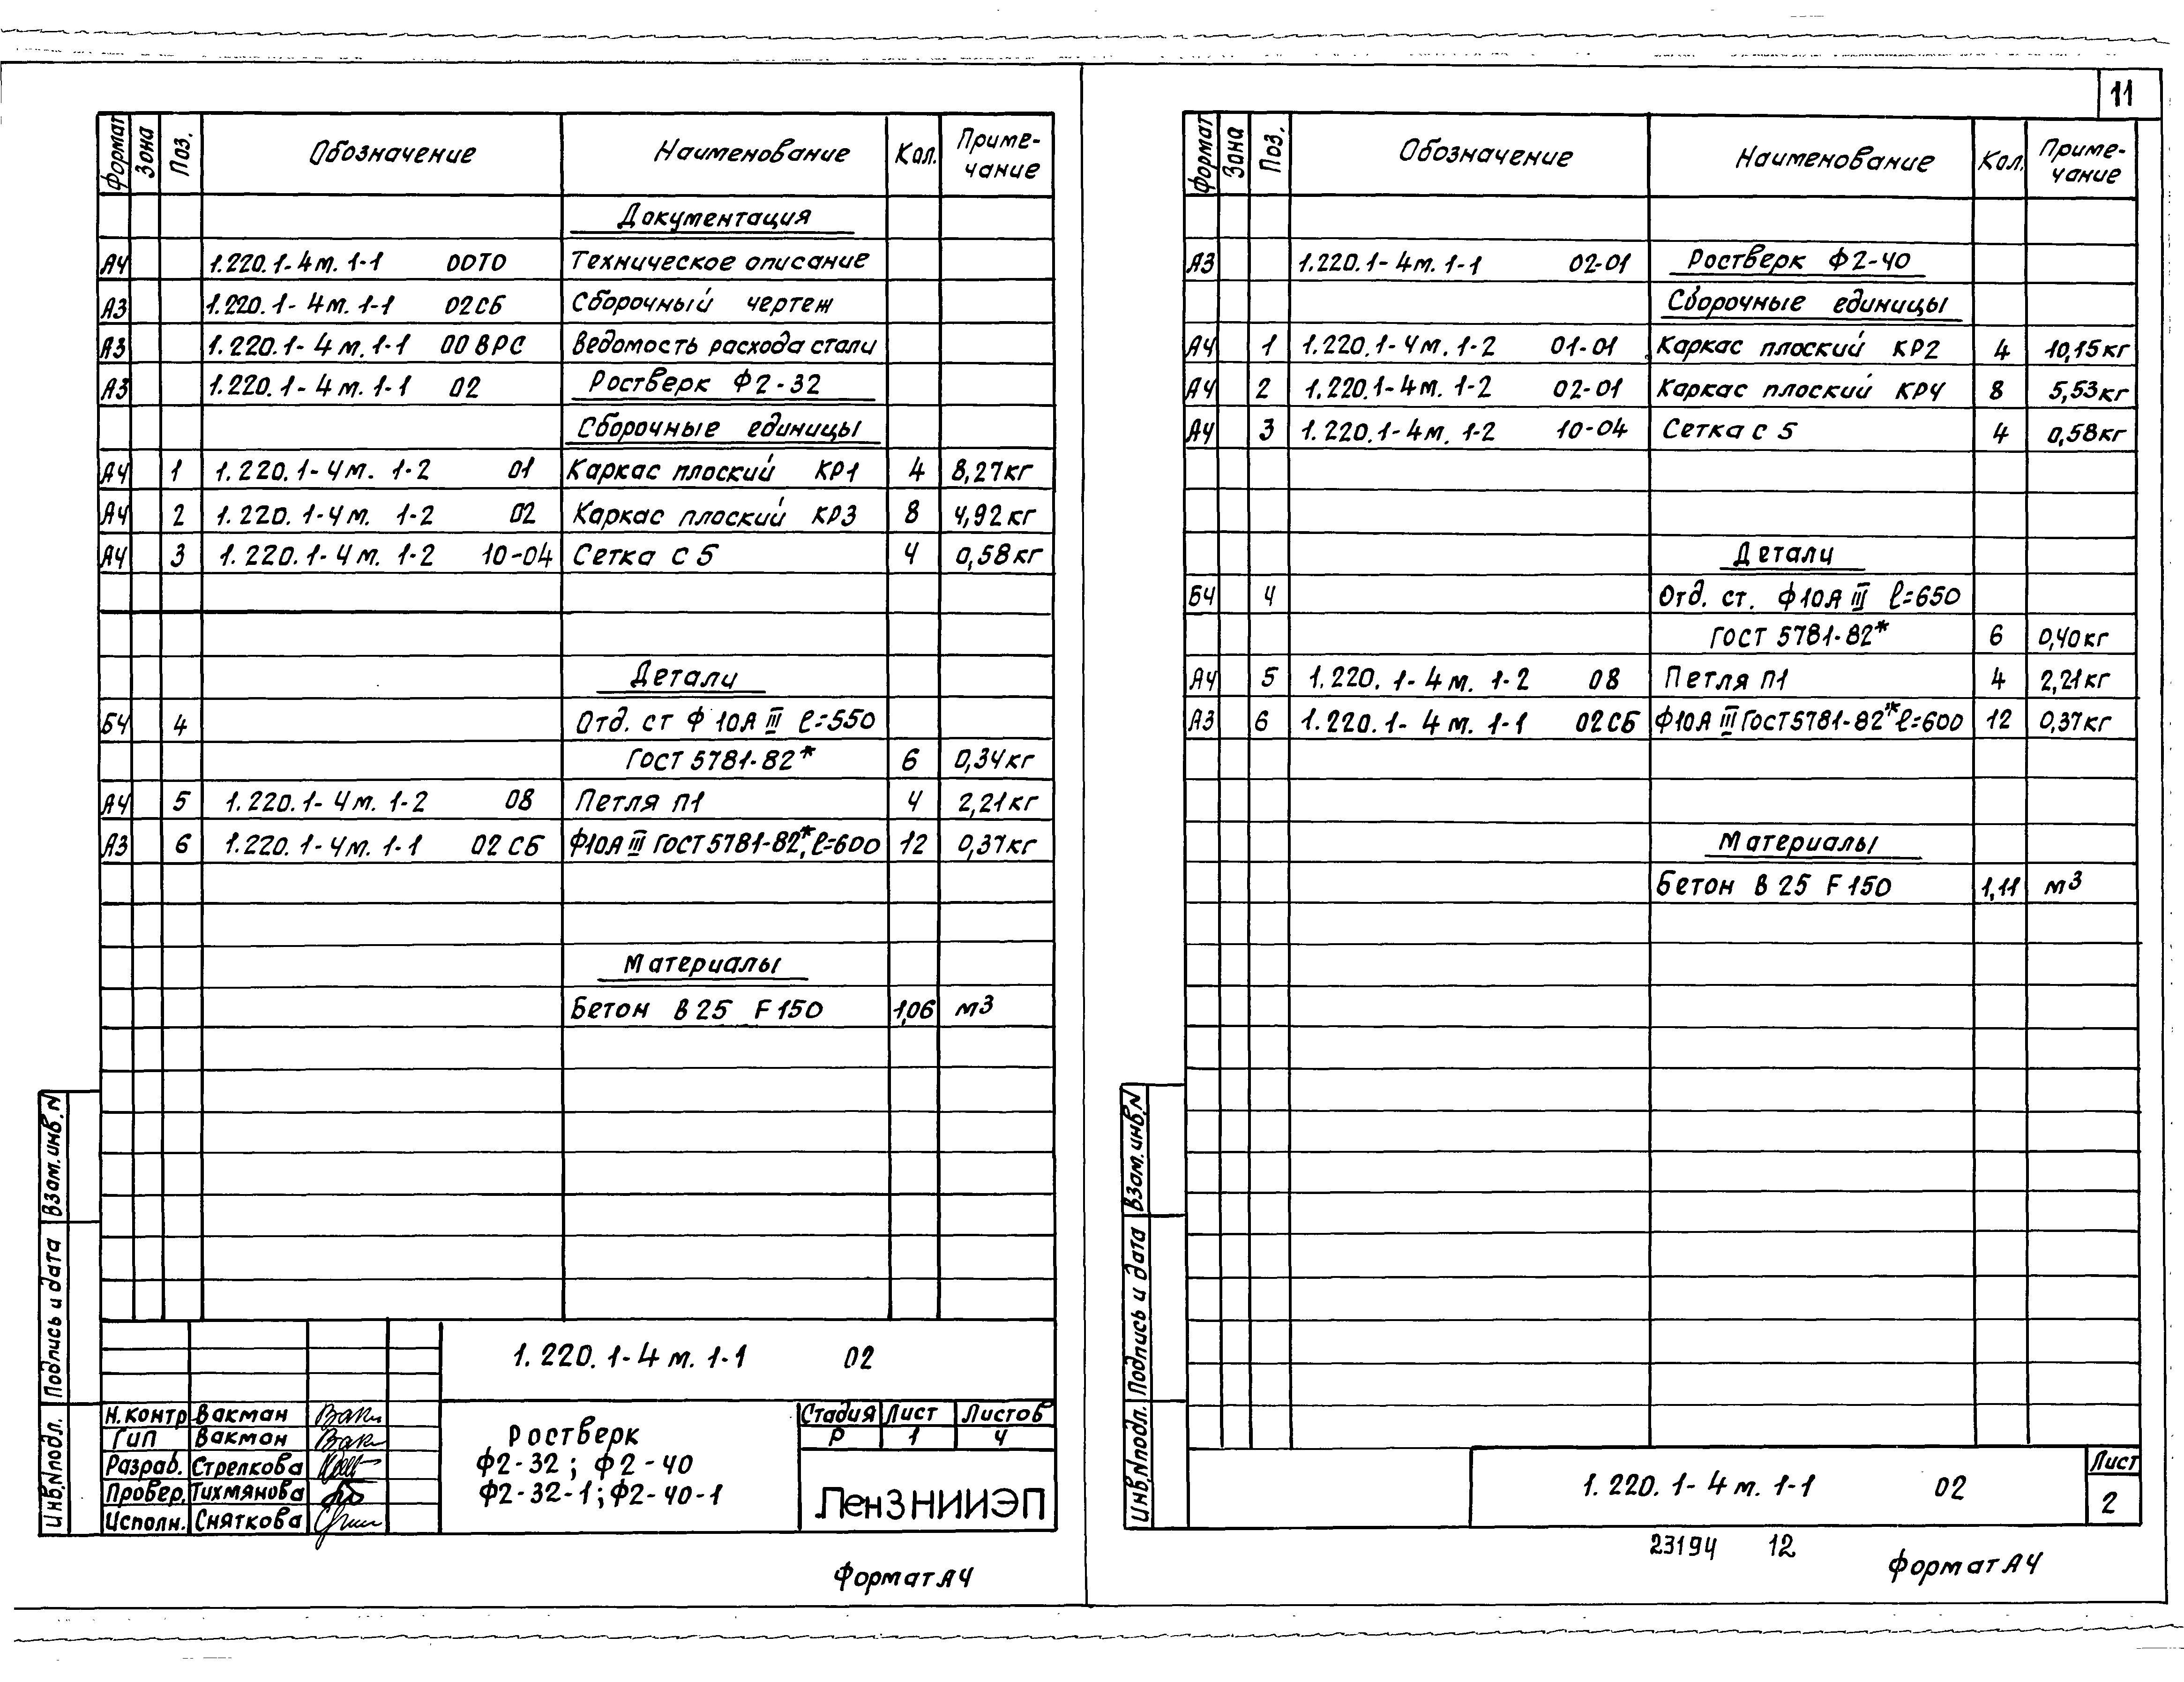 11
Формат Зона Поз. Обозначение Наименование Кол. Приме-
чание
Документация
А4 1.220.1-4м.1-1 00ТО Техническое описание
А3 1.220.1-4м.1-1 02СБ Сборочный чертеж
А3 1.220.1-4м.1-1 00ВРС Ведомость расхода стали
А3 1.220.1-4м.1-1 02 Ростверк Ф2-32
Сборочные единицы
А4 1 1.220.1-4м.1-2 01 Каркас плоский КР1 4 8,27кг
А4 2 1.220.1-4м.1-2 02 Каркас плоский КР3 8 4,92кг
А4 3 1.220.1-4м.1-2 10-04 Сетка С5 4 0,58кг
Детали
БЧ 4 Отд. ст Ф10АIII ℓ=550
ГОСТ 5781-82* 6 0,34кг
А4 5 1.220.1-4м.1-2 08 Петля П1 4 2,21кг
А3 6 1.220.1-4м.1-1 02СБ Ф10АIII ГОСТ5781-82*, ℓ=600 12 0,37кг
Материалы
Бетон В25 F150 1,06 м3
Взам.инв.N
Подпись и дата
Инв.Nподл.
1.220.1-4м.1-1 02
Н.контр Вакман
ГИП Вакман
Разраб. Стрелкова
Провер. Тихмянова
Исполн. Сняткова
Ростверк
Ф2-32; Ф2-40
Ф2-32-1; Ф2-40-1
Стадия Лист Листов
Р 1 4
ЛенЗНИИЭП
Формат А4
Формат Зона Поз. Обозначение Наименование Кол. Приме-
чание
А3 1.220.1-4м.1-1 02-01 Ростверк Ф2-40
Сборочные единицы
А4 1 1.220.1-4м.1-2 01-01 Каркас плоский КР2 4 10,15кг
А4 2 1.220.1-4м.1-2 02-01 Каркас плоский КР4 8 5,53кг
А4 3 1.220.1-4м.1-2 10-04 Сетка С5 4 0,58кг
Детали
БЧ 4 Отд. ст. Ф10АIII ℓ=650
ГОСТ 5781-82* 6 0,40кг
А4 5 1.220.1-4м.1-2 08 Петля П1 4 2,21кг
А3 6 1.220.1-4м.1-1 02СБ Ф10АIII ГОСТ5781-82* ℓ=600 12 0,37кг
Материалы
Бетон В25 F150 1,11 м3
Взам.инв.N
Подпись и дата
Инв.Nподл.
1.220.1-4м.1-1 02
Лист
2
23194 12
Формат А4